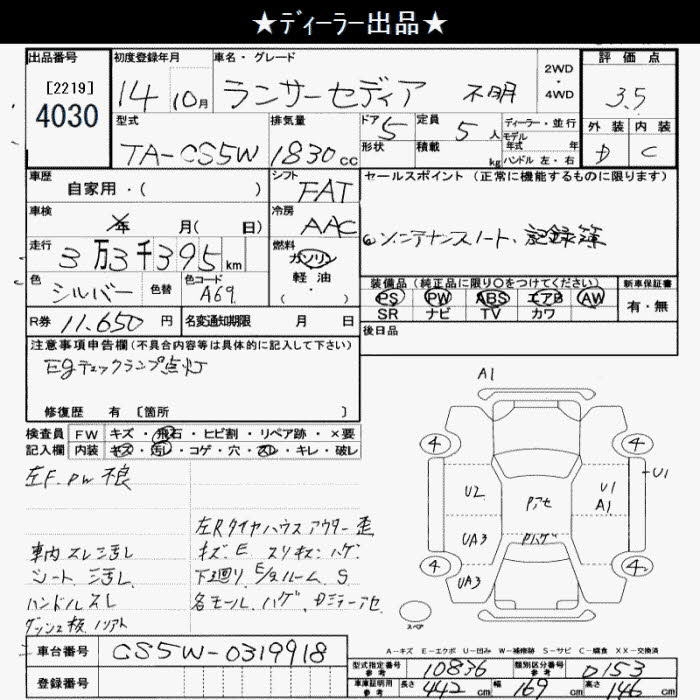 ★ディーラー出品★
出品番号 初度登録年月 車名・グレード 評価点
[2219] 4030 14 10月 ランサーセディア 不明 2WD・4WD 3.5
型式 排気量 ドア 5 定員 5人 ディーラー・並行 外装 内装
TA-CS5W 1830cc 形状 積載 kg モデル年式 年 ハンドル 左・右 D C
車歴 自家用・( ) シフト FAT セールスポイント(正常に機能するものに限ります)
車検 年 月( 日) 冷房 AAC
走行 3万3千395km 燃料 ガソリン 軽油 ( ・ ) ノート、記録簿
色 シルバー 色替 色コード A69 装備品(純正品に限り○をつけてください) 新車保証書
PS PW ABS エアB AW 有・無
SR ナビ TV カワ
R券 11,650円 名変通知期限 月 日 後日品
注意事項申告欄(不具合内容等は具体的に記入して下さい)
Egチェックランプ点灯
修復歴 有 [箇所 ]
検査員 FW キズ・飛石・ヒビ割・リペア跡・×要
記入欄 内装 キズ・汚レ・コゲ・穴・スレ・キレ・破レ
左F.PW不良
左Rタイヤハウスアウター歪
車内スレ汚レ キズ・E スリキズ・ハゲ
シート 汚レ 下廻り、E/gルーム S
ハンドルスレ 各モール、ハゲ
A1
4 4
U1
U2 Pアセ U1 A1
UA3 Pハゲ
4 4
UA3
スペア
A-キズ E-エクボ U-凹み W-補修跡 S-サビ C-腐食 XX-交換済
車台番号 CS5W-0319918
登録番号
型式指定番号 参考 10836 類別区分番号 参考 0153
車庫証明用 参考 長さ 442cm 幅 169cm 高さ 146cm